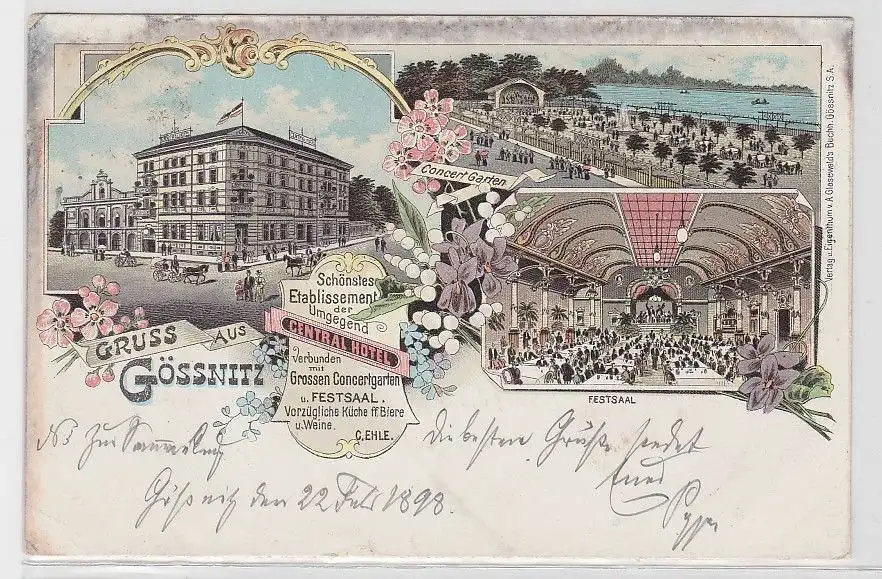 Concert Garten
GRUSS AUS
GÖSSNITZ
Schönstes
Etablissement
der
Umgegend
CENTRAL HOTEL
Verbunden
mit
Grossen Concertgarten
u. FESTSAAL.
Vorzügliche Küche ff Biere
u. Weine.
C. EHLE.
FESTSAAL
Verlag u. Eigenthum v. A. Glasewald's Buchh. Gössnitz S.A.
zur Sammelung
Gößnitz den 22 Juli 1898.
die besten Grüße sendet